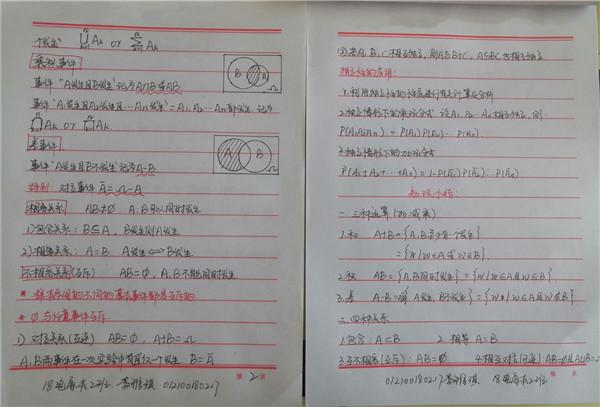 个发生" ∪Ak or ΣAk
乘积事件
事件"A发生且B发生"记为A∩B或AB
事件"A₁发生且A₂发生且…An发生" = A₁A₂…An都发生 记为
∩Ak or ∏Ak
差事件
事件"A发生且B不发生"记为A-B
特别: 对立事件 Ā=Ω-A
相容关系 AB≠∅ A.B可以同时发生
1)包含关系: B⊆A, B发生则A发生
2)相等关系: A=B. A发生⟺B发生
不相容关系(互斥) AB=∅, A.B不能同时发生
* 样本空间的不同的基本事件都是互斥的
* ∅与任意事件互斥
1) 对立关系(互逆) AB=∅, A+B=Ω
A.B两事件在一次实验中有且仅一个发生 B=Ā
第 2 页
012100180217
(2)若A.B.C相互独立, 则A与B+C, A与BC也相互独立
独立性的应用:
1.利用独立性的性质进行有关计算及分析
2.独立情形下的乘法公式 设A₁.A₂…An相互独立, 则
P(A₁A₂…An) = P(A₁)P(A₂)…P(An)
3.独立情形下的加法公式
P(A₁+A₂+…+An) = 1-P(Ā₁)P(Ā₂)…P(Ān)
知识小结:
一 三种运算(加.减.乘)
1.和 A+B={A.B至少有一个发生}
={w|w∈A或w∈B}
2.积 AB={A.B同时发生}={w|w∈A且w∈B}
3.差 A-B={A发生, B不发生}={w|w∈A且w∉B}
二.四种关系
1.包含: A⊂B 2.相等 A=B
3.互不相容(互斥): AB=∅ 4.相互对立(互逆): AB=∅且A∪B=Ω
012100180217
第 页